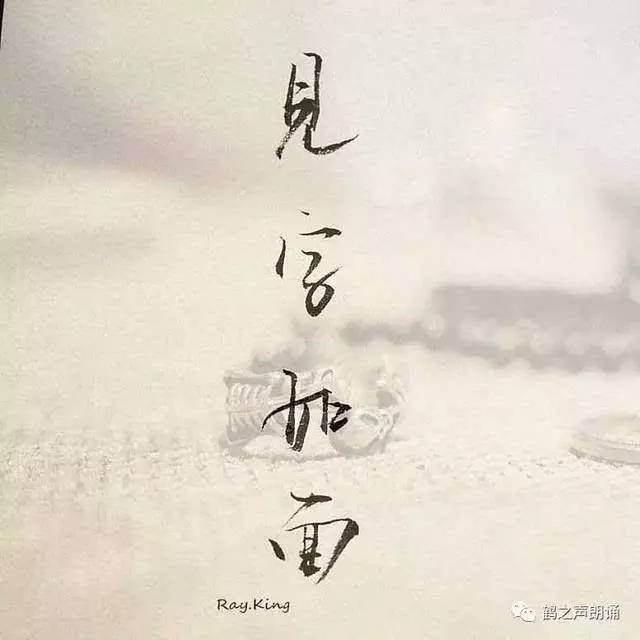 見字如面
Ray.King
鹤之声朗诵